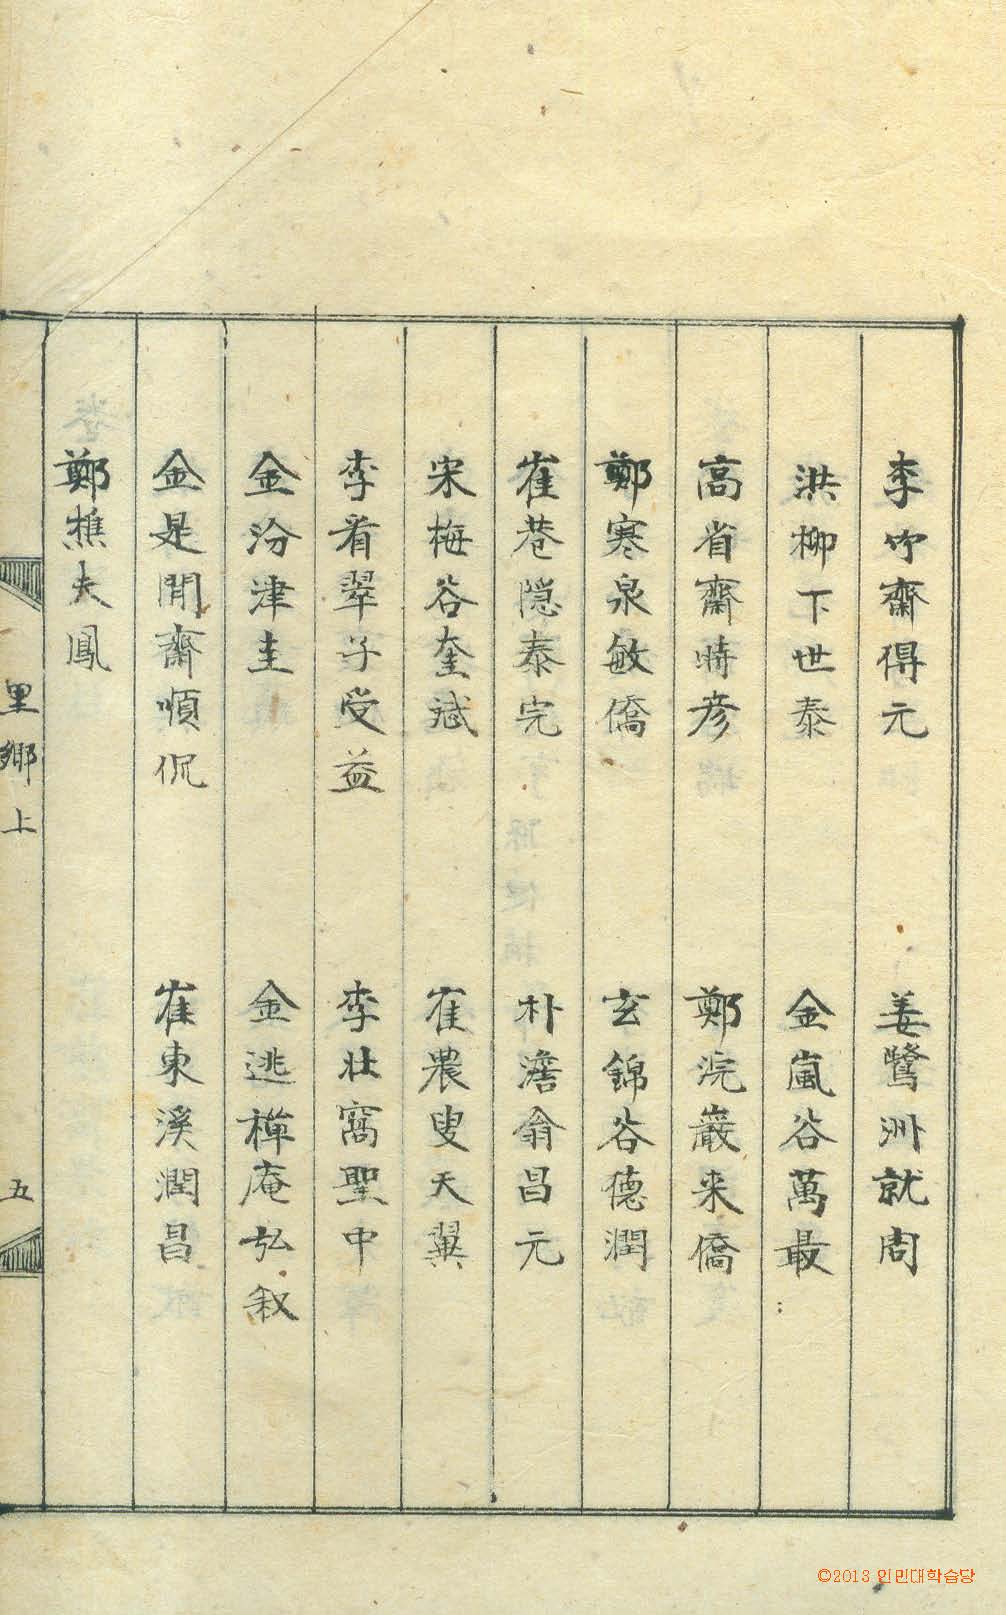 李竹齋得元 姜鷺洲就周
洪柳下世泰 金嵐谷萬最
高省齋時彦 鄭浣巖来僑
鄭寒泉敏僑 玄錦谷德潤
崔巷隠泰完 朴澹翁昌元
宋梅谷奎斌 崔農叟天翼
李看翠子受益 李壮窩聖中
金汾津圭 金逃禪庵弘叙
金是閒齋順侃 崔東溪潤昌
鄭樵夫鳳
里鄉上 五
©2013 인민대학습당